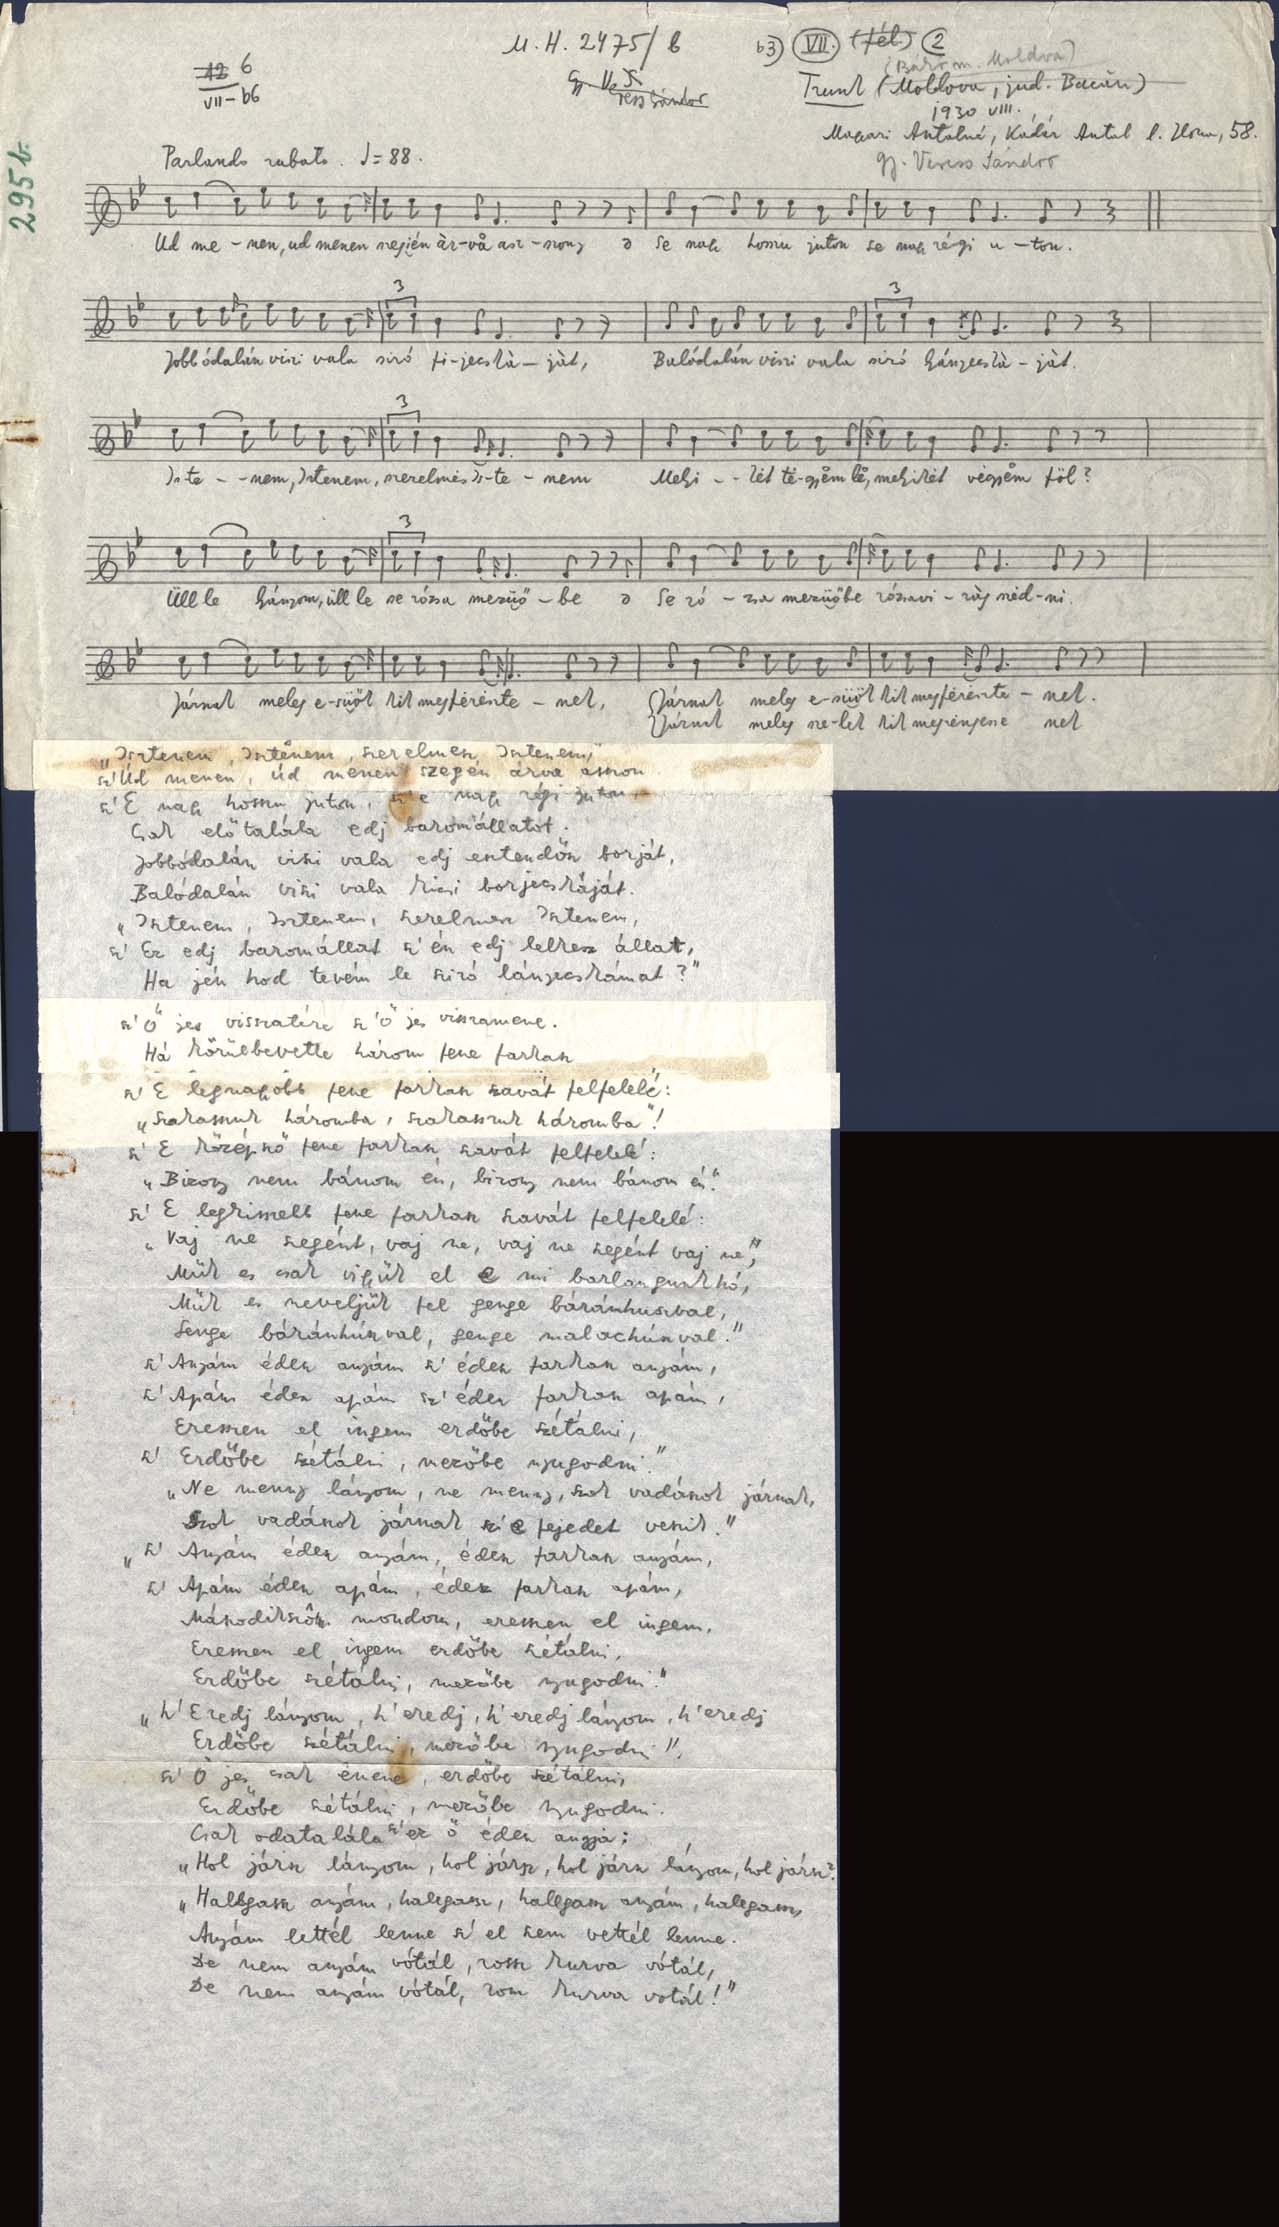 M. H. 2475/b
b3) VII. (fél.) 2
12 6
VII-b6
Gy. Veress Sándor
(Bákó m. Moldva)
Trunk (Moldova, jud. Bacău)
1930 VIII.
Magyari Antalné, Kádár Antal l. Ilona, 58.
gy. Veress Sándor
295 b.
Parlando rubato. ♩=88.
Ud me - nen, ud menen szején àr-vå asz-szony ə Se nagy hosszu juton se nagy régi u-ton.
3 3
Jobbódalán viszi vala síró fi-jecskà-ját, Balódalán viszi vala síró lányecskà-ját.
3
Is-te - - nem, Istenem, szerelmes Is-te - nem Melyi - - két té-gyem le, melyikét végyem föl?
3
Üll le lányom, üll le se rózsa mezüő-be ə Se ró - zsa mezüőbe rózsavi - ràg széd-ni.
Járnak meleg e-süők kik megferészte - nek, Járnak meleg e-süők kik megferészte - nek.
Járnak meleg sze-lek kik megrengesse nek
„Isztenem, Isztenem, szerelmesz Isztenem,"
sz' Úd menen, úd menen szegén árva asszon
sz' E nagy hosszu juton, sz' e nagy régi juton,
Csak előtalála edj baromállatot.
Jobbódalán viszi vala edj esztendősz borját,
Balódalán viszi vala kicsi borjecskáját.
„Isztenem, Isztenem, szerelmesz Isztenem,
sz' Ez edj baromállat sz' én edj lelkesz állat,
Ha jén hod tevém le sziró lányecskámat?"
sz' Ő jes visszatére sz' ő jes visszamene.
Há körülbevette három fene farkas
sz' E legnagyobb fene farkas szavát felfelelé:
„Szakasszuk háromba, szakasszuk háromba"!
sz' E középső fene farkas szavát felfelelé:
„Bizony nem bánom én, bizony nem bánom én."
sz' E legkisszebb fene farkas szavát felfelelé:
„Vaj ne szegént, vaj ne, vaj ne szegént vaj ne,"
Mük es csak vigyük el e mi barlangunkhó,
Mük es neveljük fel genge bárányhuszval,
Genge bárányhúszval, genge malachúszval."
sz' Anyám édesz anyám sz' édesz farkasz anyám,
sz' Apám édesz apám sz' édesz farkasz apám,
Eresszen el ingem erdőbe szétálni,
sz' Erdőbe szétálni, mezőbe nyugodni."
„Ne menny lányom, ne menny, szok vadászok járnak,
Szok vadászok járnak sz' e fejedet veszik."
„sz' Anyám édesz anyám, édesz farkasz anyám,
sz' Apám édesz apám, édesz farkasz apám,
Másodikszor mondom, eresszen el ingem,
Eresszen el ingem erdőbe szétálni,
Erdőbe szétálni, mezőbe nyugodni."
„h' Eredj lányom, h' eredj, h' eredj lányom, h' eredj
Erdőbe szétálni, mezőbe nyugodni",
sz' Ő jes csak énene, erdőbe szétálni,
Erdőbe szétálni, mezőbe nyugodni.
Csak odatalála sz' ez ő édesz anyja:
„Hol jársz lányom, hol jársz, hol jársz lányom, hol jársz?
„Hallgassz anyám, hallgassz, hallgassz anyám, hallgassz,
Anyám lettél lenne sz' el szem vettél lenne.
De nem anyám vótál, rossz kurva vótál,
De nem anyám vótál, rossz kurva vótál!"